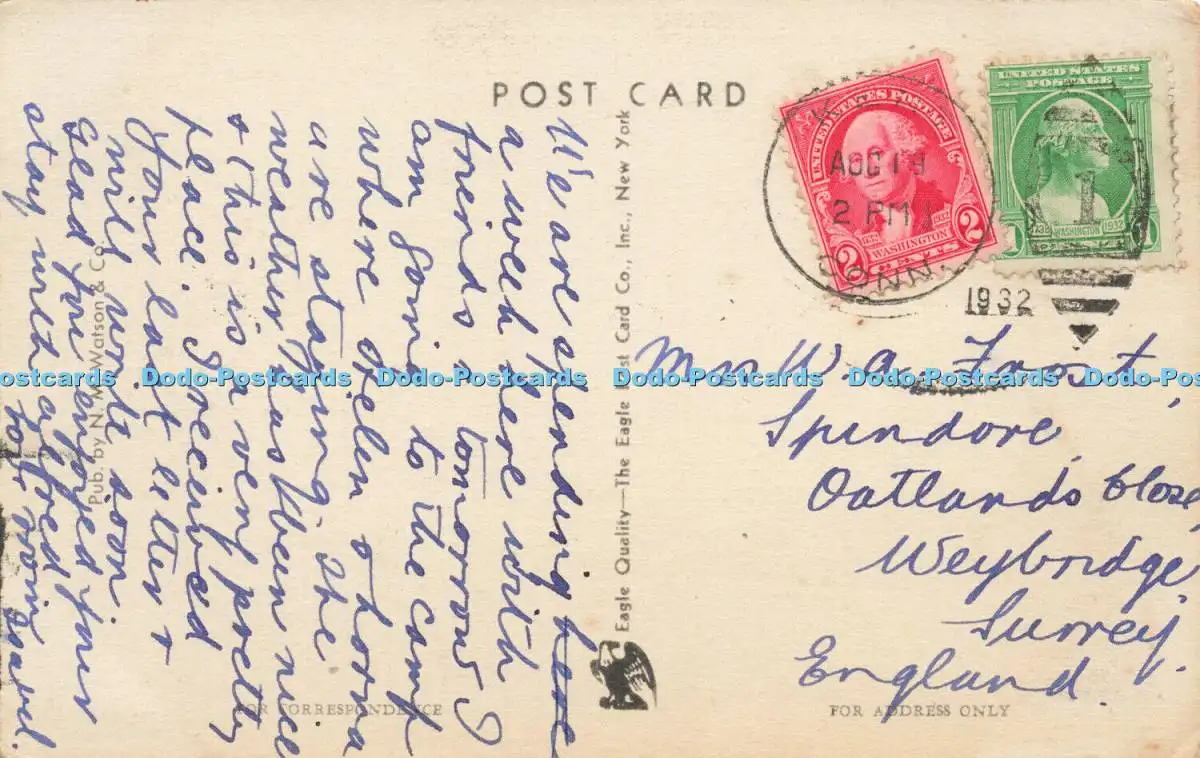 POST CARD
We are spending here
a week here with
freinds & tomorrow I
am going to the camp
where Helen & Lorna
are staying. The
weather has been nice
& this is a very pretty
place. I received
your last letter &
will write soon
Glad you enjoyed your
stay with
love from Isabel.
Pub. by N. M. Watson & Co.
Eagle Quality—The Eagle Post Card Co., Inc., New York
FOR CORRESPONDENCE
UNITED STATES POSTAGE
2 1732 1932 2
WASHINGTON
CENTS
UNITED STATES
POSTAGE
1732 WASHINGTON 1932
AUG 19
2 PM
CONN.
1932
1
Mrs W. A. Frost,
Spindore,
Oatlands Close,
Weybridge,
Surrey.
England.
FOR ADDRESS ONLY
Dodo-Postcards Dodo-Postcards Dodo-Postcards Dodo-Postcards Dodo-Postcards Dodo-Postcards